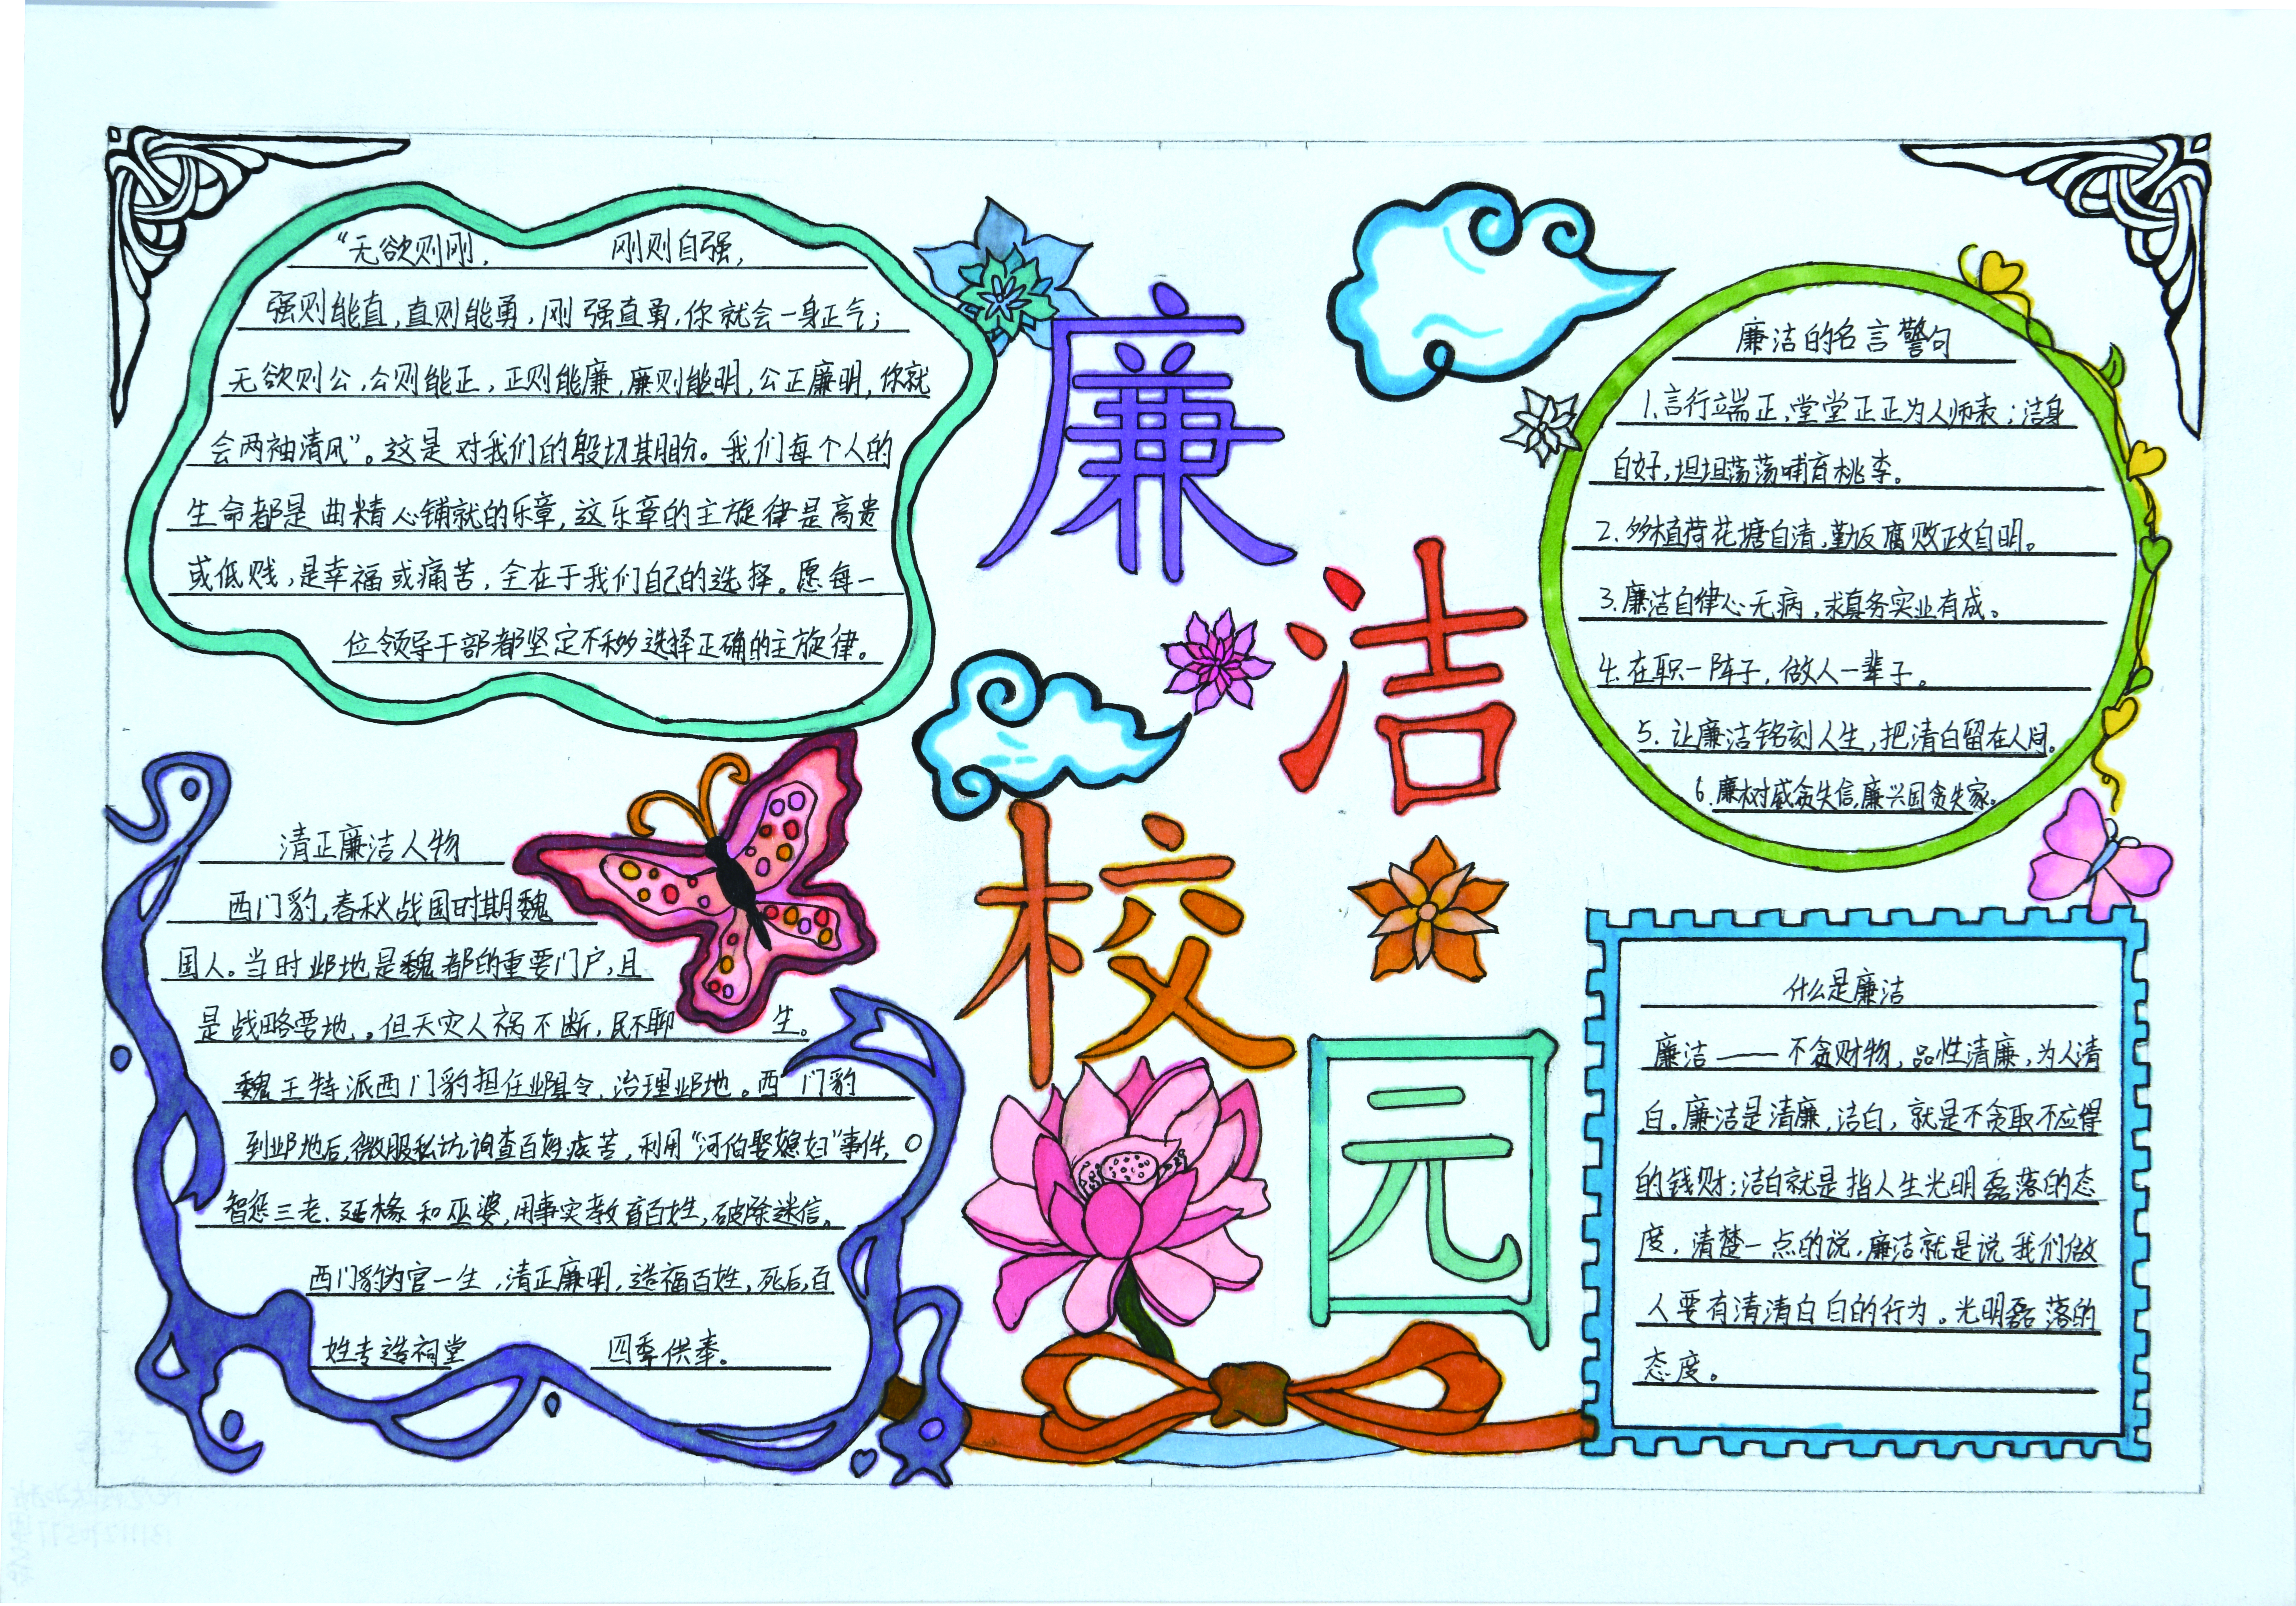 “无欲则刚，刚则自强，
强则能直，直则能勇，刚强直勇，你就会一身正气；
无欲则公，公则能正，正则能廉，廉则能明，公正廉明，你就
会两袖清风”。这是对我们的殷切期盼。我们每个人的
生命都是曲精心铺就的乐章，这乐章的主旋律是高贵
或低贱，是幸福或痛苦，全在于我们自己的选择。愿每一
位领导干部都坚定不移选择正确的主旋律。
廉
洁
校
园
廉洁的名言警句
1.言行端正，堂堂正正为人师表；洁身
自好，坦坦荡荡哺育桃李。
2.多植荷花塘自清，勤反腐败政自明。
3.廉洁自律心无病，求真务实业有成。
4.在职一阵子，做人一辈子。
5.让廉洁铭刻人生，把清白留在人间。
6.廉树威贪失信，廉兴国贪失家。
清正廉洁人物
西门豹，春秋战国时期魏
国人。当时邺地是魏都的重要门户，且
是战略要地。但天灾人祸不断，民不聊生。
魏王特派西门豹担任邺县令，治理邺地。西门豹
到邺地后，微服私访，询查百姓疾苦，利用“河伯娶媳妇”事件，
智惩三老、廷椽和巫婆，用事实教育百姓，破除迷信。
西门豹为官一生，清正廉明，造福百姓，死后，百
姓专造祠堂四季供奉。
什么是廉洁
廉洁——不贪财物，品性清廉，为人清
白。廉洁是清廉，洁白，就是不贪取不应得
的钱财；洁白就是指人生光明磊落的态
度，清楚一点的说，廉洁就是说我们做
人要有清清白白的行为。光明磊落的
态度。